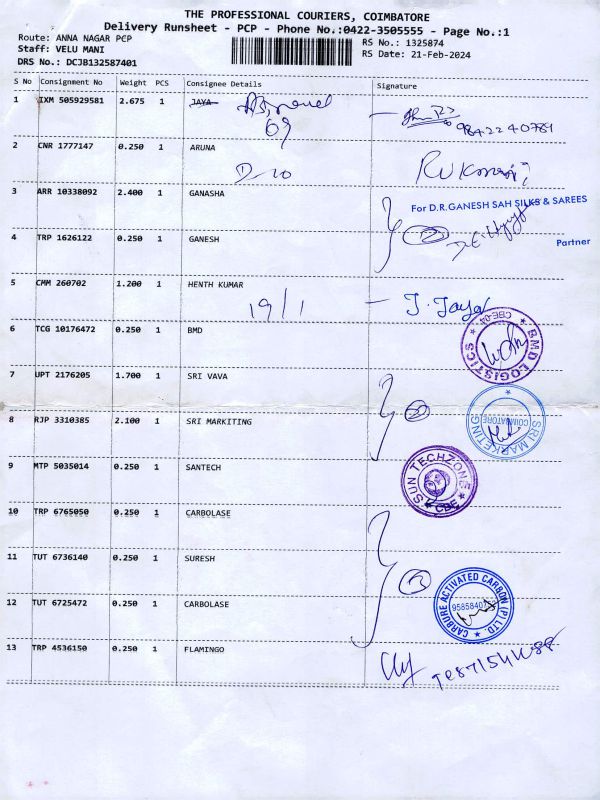 THE PROFESSIONAL COURIERS, COIMBATORE
Delivery Runsheet - PCP - Phone No.:0422-3505555 - Page No.:1
Route: ANNA NAGAR PCP
Staff: VELU MANI
DRS No.: DCJB132587401
RS No.: 1325874
RS Date: 21-Feb-2024
S No Consignment No Weight PCS Consignee Details Signature
1 IXM 505929581 2.675 1 JAYA
69
9842240784
2 CNR 1777147 0.250 1 ARUNA
D-10
3 ARR 10338092 2.400 1 GANASHA
For D.R.GANESH SAH SILKS & SAREES
2
Partner
4 TRP 1626122 0.250 1 GANESH
5 CMM 260702 1.200 1 HENTH KUMAR
19/1
J. Jaya
6 TCG 10176472 0.250 1 BMD
BMD LOGISTICS
CBE-04
7 UPT 2176205 1.700 1 SRI VAVA
2
8 RJP 3310385 2.100 1 SRI MARKITING
SRI MARKETING
COIMBATORE
9 MTP 5035014 0.250 1 SANTECH
SUN TECHZONE
CBE
10 TRP 6765050 0.250 1 CARBOLASE
11 TUT 6736140 0.250 1 SURESH
CARBURE ACTIVATED CARBON (P) LTD.
12 TUT 6725472 0.250 1 CARBOLASE
13 TRP 4536150 0.250 1 FLAMINGO